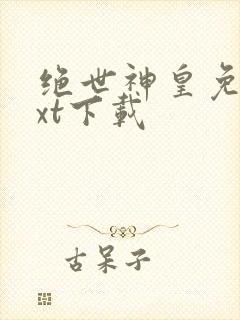 绝世神皇免
xt下载
古呆子